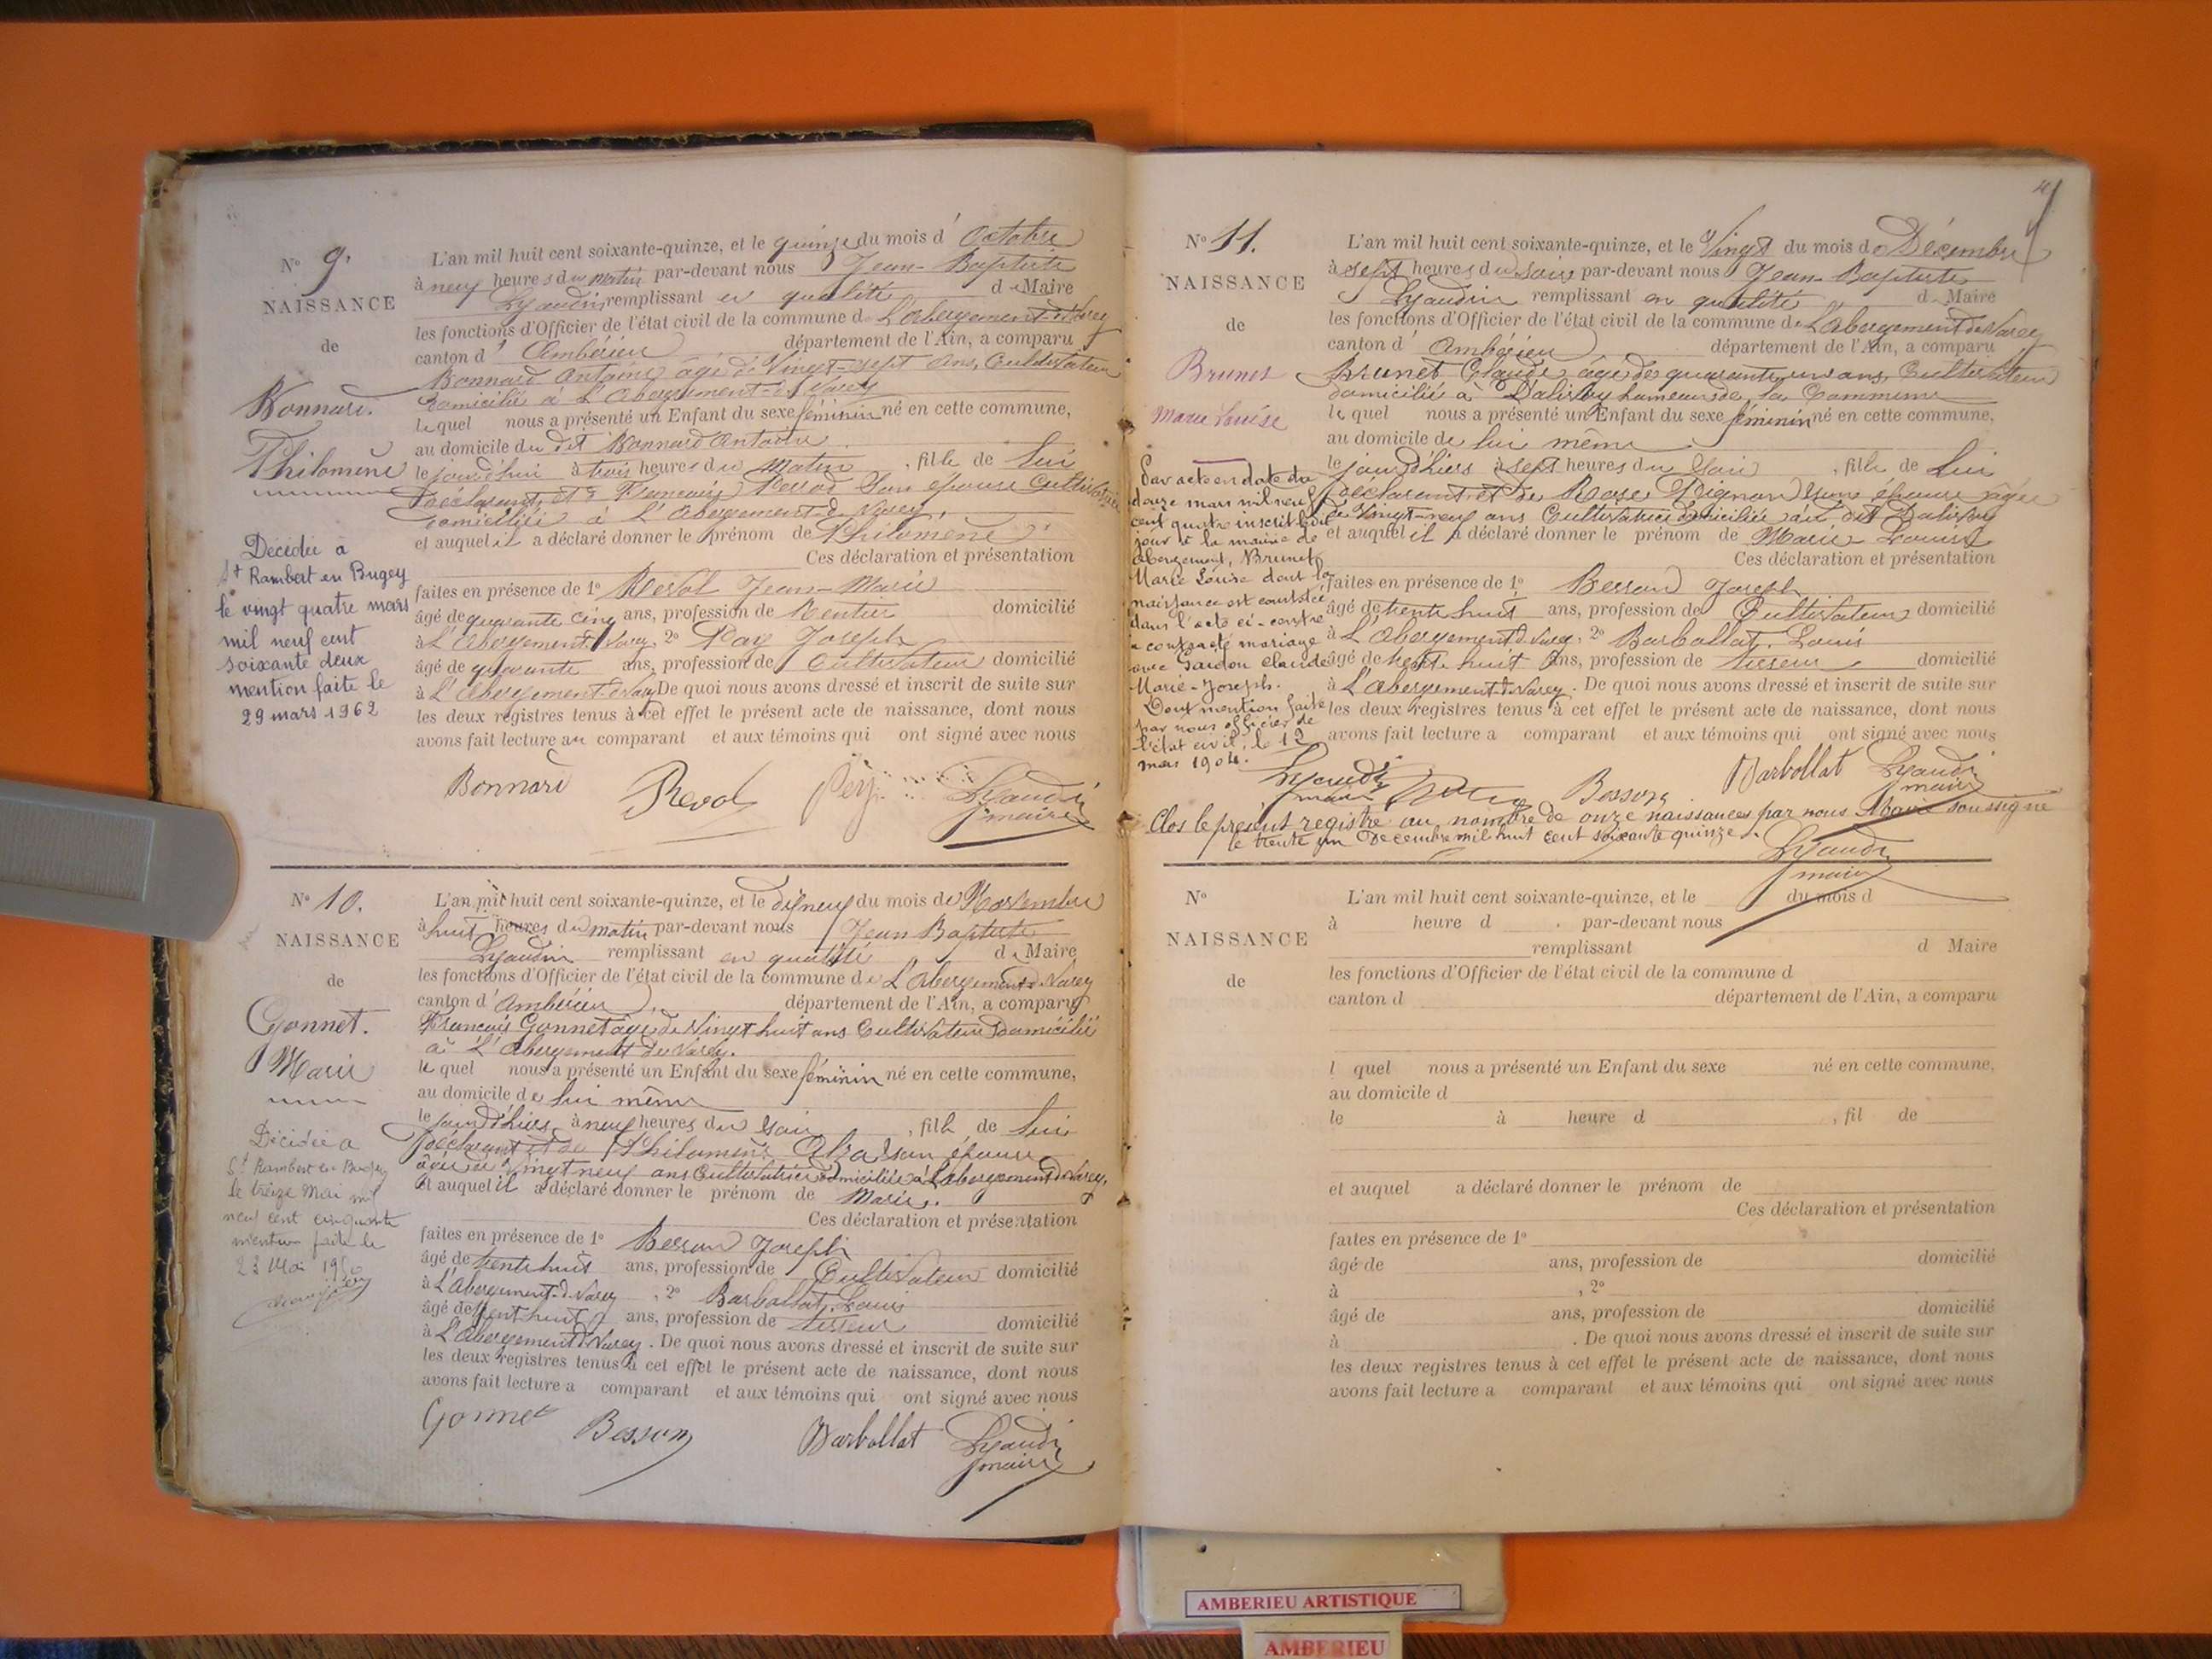 N° 9.
NAISSANCE
de
Bonnard.
Philomène
Décédée à
St Rambert en Bugey
le vingt quatre mars
mil neuf cent
soixante deux
mention faite le
29 mars 1962
L'an mil huit cent soixante-quinze, et le quinze du mois d'Octobre
à neuf heures du matin par-devant nous Jean-Baptiste
Lyaudin remplissant en qualité de Maire
les fonctions d'Officier de l'état civil de la commune de L'abergement-de-Varey
canton d'Ambérieu département de l'Ain, a comparu
Bonnard Antoine âgé de Vingt-sept ans, Cultivateur
domicilié à L'abergement-de-Varey
lequel nous a présenté un Enfant du sexe féminin né en cette commune,
au domicile du dit Bonnard Antoine
le jourd'hui à trois heures du matin, fille de lui
déclarant et de son épouse Cultivatrice
domiciliée à L'abergement-de-Varey,
et auquel il a déclaré donner le prénom de Philomène
Ces déclaration et présentation
faites en présence de 1° Revol Jean-Marie
âgé de quarante cinq ans, profession de Rentier domicilié
à L'abergement-de-Varey, 2° Joseph
âgé de quarante ans, profession de Cultivateur domicilié
à L'abergement-de-Varey De quoi nous avons dressé et inscrit de suite sur
les deux registres tenus à cet effet le présent acte de naissance, dont nous
avons fait lecture au comparant et aux témoins qui ont signé avec nous
Bonnard Revol Lyaudin
maire
N° 10.
NAISSANCE
de
Gonnet.
Marie
Décédée à
St Rambert en Bugey
le treize Mai mil
neuf cent cinquante
mention faite le
23 Mai 1950
L'an mil huit cent soixante-quinze, et le dix neuf du mois de Novembre
à huit heures du matin par-devant nous Jean Baptiste
Lyaudin remplissant en qualité de Maire
les fonctions d'Officier de l'état civil de la commune de L'abergement-de-Varey
canton d'Ambérieu, département de l'Ain, a comparu
François Gonnet âgé de Vingt huit ans Cultivateur domicilié
à L'abergement de Varey.
lequel nous a présenté un Enfant du sexe féminin né en cette commune,
au domicile de lui même
le jour d'hier, à neuf heures du soir, fille de lui
déclarant et de Philomène son épouse
âgée de Vingt neuf ans Cultivatrice domiciliée à L'abergement-de-Varey,
et auquel il a déclaré donner le prénom de Marie.
Ces déclaration et présentation
faites en présence de 1° Besson Joseph
âgé de trente huit ans, profession de Cultivateur domicilié
à L'abergement-de-Varey, 2° Barbollat Louis
âgé de trente huit ans, profession de tisseur domicilié
à L'abergement-de-Varey. De quoi nous avons dressé et inscrit de suite sur
les deux registres tenus à cet effet le présent acte de naissance, dont nous
avons fait lecture a comparant et aux témoins qui ont signé avec nous
Gonnet Besson Barbollat Lyaudin
maire
N° 11.
NAISSANCE
de
Brunet
Marie Louise
Par acte en date du
douze mars mil neuf
cent quatre inscrit ledit
jour à la mairie de
abergement, Brunet
Marie Louise dont la
naissance est constatée
dans l'acte ci-contre
a contracté mariage
avec Gardon Claude
Marie-Joseph.
Dont mention faite
par nous officier de
l'état civil, le 12
mars 1904.
Lyaudin
maire
L'an mil huit cent soixante-quinze, et le Vingt du mois de Décembre
à sept heures du soir par-devant nous Jean-Baptiste
Lyaudin remplissant en qualité de Maire
les fonctions d'Officier de l'état civil de la commune de L'abergement de Varey
canton d'Ambérieu département de l'Ain, a comparu
Brunet Claude âgé de quarante un ans, Cultivateur
domicilié à Dalivoy hameau de la Commune
lequel nous a présenté un Enfant du sexe féminin né en cette commune,
au domicile de lui même
le jour d'hier à sept heures du soir, fille de lui
déclarant et de Rose son épouse âgée
de Vingt-neuf ans Cultivatrice domiciliée au dit Dalivoy
et auquel il a déclaré donner le prénom de Marie-Louise
Ces déclaration et présentation
faites en présence de 1° Besson Joseph
âgé de trente huit ans, profession de Cultivateur domicilié
à L'abergement-de-Varey, 2° Barbollat Louis
âgé de trente huit ans, profession de tisseur domicilié
à L'abergement-de-Varey. De quoi nous avons dressé et inscrit de suite sur
les deux registres tenus à cet effet le présent acte de naissance, dont nous
avons fait lecture a comparant et aux témoins qui ont signé avec nous
Besson Barbollat Lyaudin
maire
Clos le présent registre au nombre de onze naissances par nous Maire soussigné
le trente un Décembre mil huit cent soixante quinze.
Lyaudin
maire
N°
NAISSANCE
de
L'an mil huit cent soixante-quinze, et le du mois d
à heure d . par-devant nous
remplissant d Maire
les fonctions d'Officier de l'état civil de la commune d
canton d département de l'Ain, a comparu
l quel nous a présenté un Enfant du sexe né en cette commune,
au domicile d
le à heure d , fil de
et auquel a déclaré donner le prénom de
Ces déclaration et présentation
faites en présence de 1°
âgé de ans, profession de domicilié
à , 2°
âgé de ans, profession de domicilié
à . De quoi nous avons dressé et inscrit de suite sur
les deux registres tenus à cet effet le présent acte de naissance, dont nous
avons fait lecture a comparant et aux témoins qui ont signé avec nous
AMBERIEU ARTISTIQUE
AMBERIEU